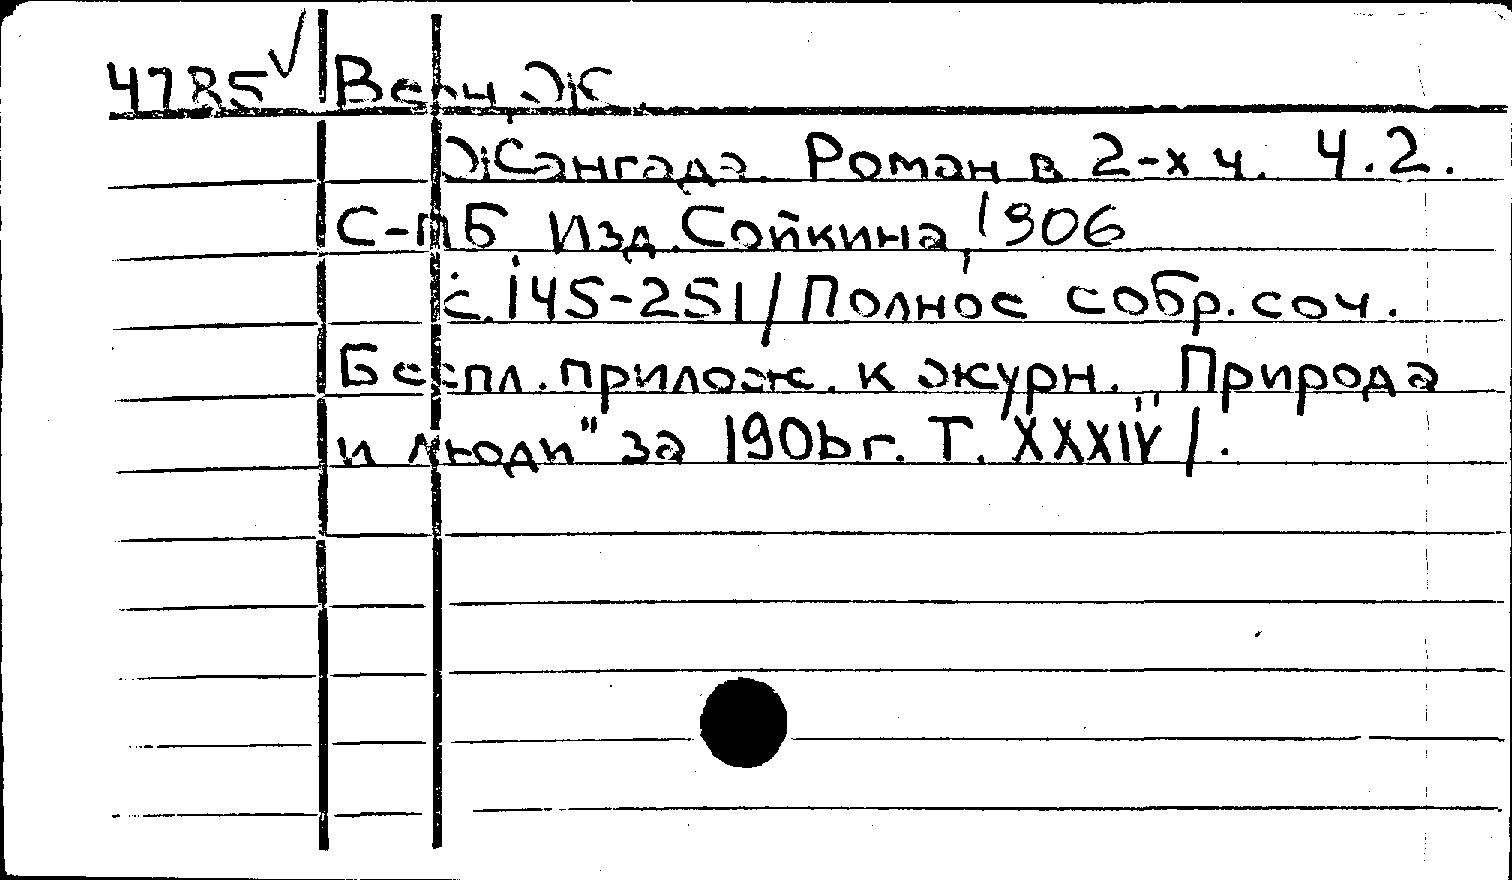 4785 √ Верн, Ж.
Жангада. Роман в 2-х ч. Ч.2.
С-ПБ Изд. Сойкина, 1906
с. 145-251 /Полное собр. соч.
Беспл. прилож. к журн. "Природа
и люди" за 1906 г. Т. XXXIV/.